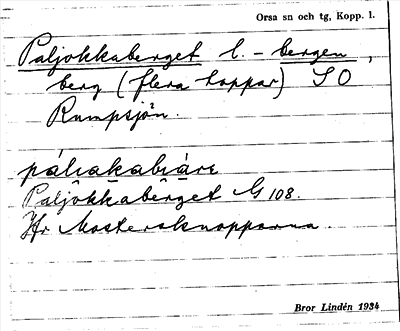 Orsa sn och tg, Kopp. l.
Paljokkaberget l. - bergen,
berg (flera toppar) SO
Rumpsjön.
Paljokkaberget G 108.
Jfr Mostersknopparna.
Bror Lindén 1934